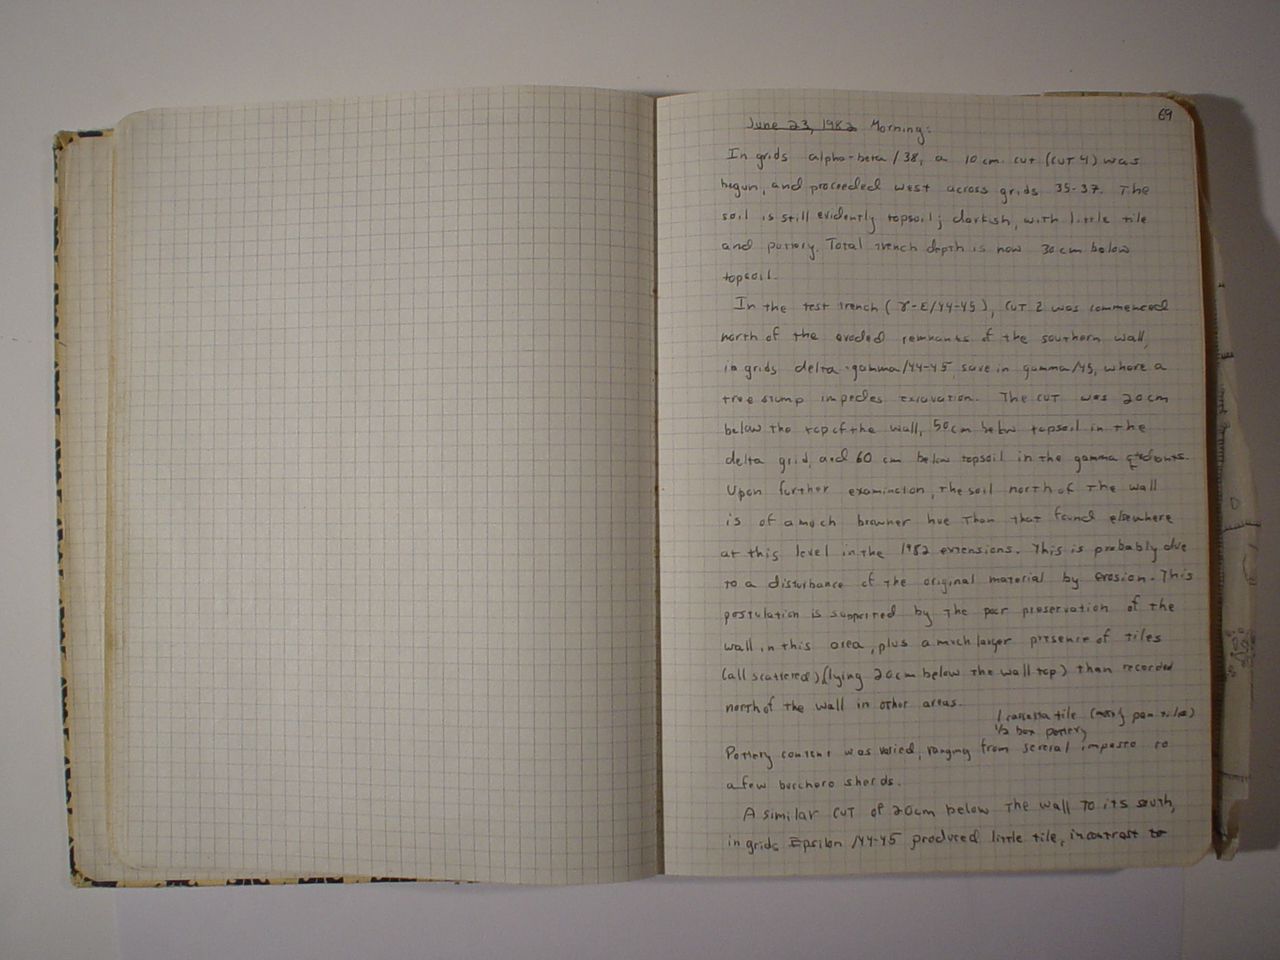 69
June 23, 1982 Morning:
In grids alpha-beta/38, a 10 cm. cut (cut 4) was
begun, and proceeded west across grids 35-37. The
soil is still evidently topsoil; darkish, with little tile
and pottery. Total trench depth is now 30 cm below
topsoil.
In the test trench (γ-ε/44-45), cut 2 was commenced
north of the eroded remnants of the southern wall,
in grids delta-gamma/44-45, save in gamma/45, where a
tree stump impedes excavation. The cut was 20 cm
below the top of the wall, 50 cm below topsoil in the
delta grid, and 60 cm below topsoil in the gamma
Upon further examination, the soil north of the wall
is of a much browner hue than that found elsewhere
at this level in the 1982 extensions. This is probably due
to a disturbance of the original material by erosion. This
postulation is supported by the poor preservation of the
wall in this area, plus a much larger presence of tiles
(all scattered) (lying 20 cm below the wall top) than recorded
north of the wall in other areas.
1 cassetta tile (mostly pan tiles)
1/2 box pottery
Pottery content was varied, ranging from several impasto to
a few bucchero sherds.
A similar cut of 20 cm below the wall to its south,
in grids Epsilon/44-45 produced little tile, in contrast to